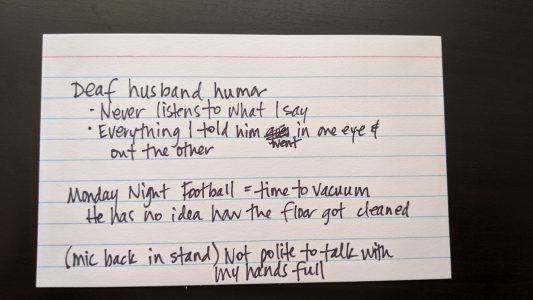 Deaf husband humor
• Never listens to what I say
• Everything I told him went in one eye &
out the other
Monday Night Football = time to vacuum
He has no idea how the floor got cleaned
(mic back in stand) Not polite to talk with
my hands full